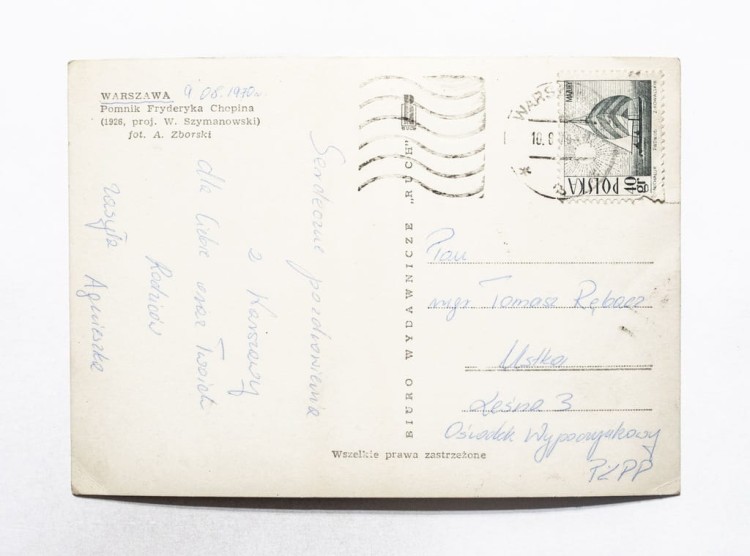 WARSZAWA 9 06. 1970 r
Pomnik Fryderyka Chopina
(1926, proj. W. Szymanowski)
fot. A. Zborski
Serdeczne pozdrowienia
z Warszawy
dla Ciebie oraz Twoich
Rodziców
zasyła Agnieszka
BIURO WYDAWNICZE „RUCH"
WARSZ
10. 6
40 gr POLSKA
Pan
mgr Tomasz Rębacz
Ustka
Leśna 3
Ośrodek Wypoczynkowy
Wszelkie prawa zastrzeżone